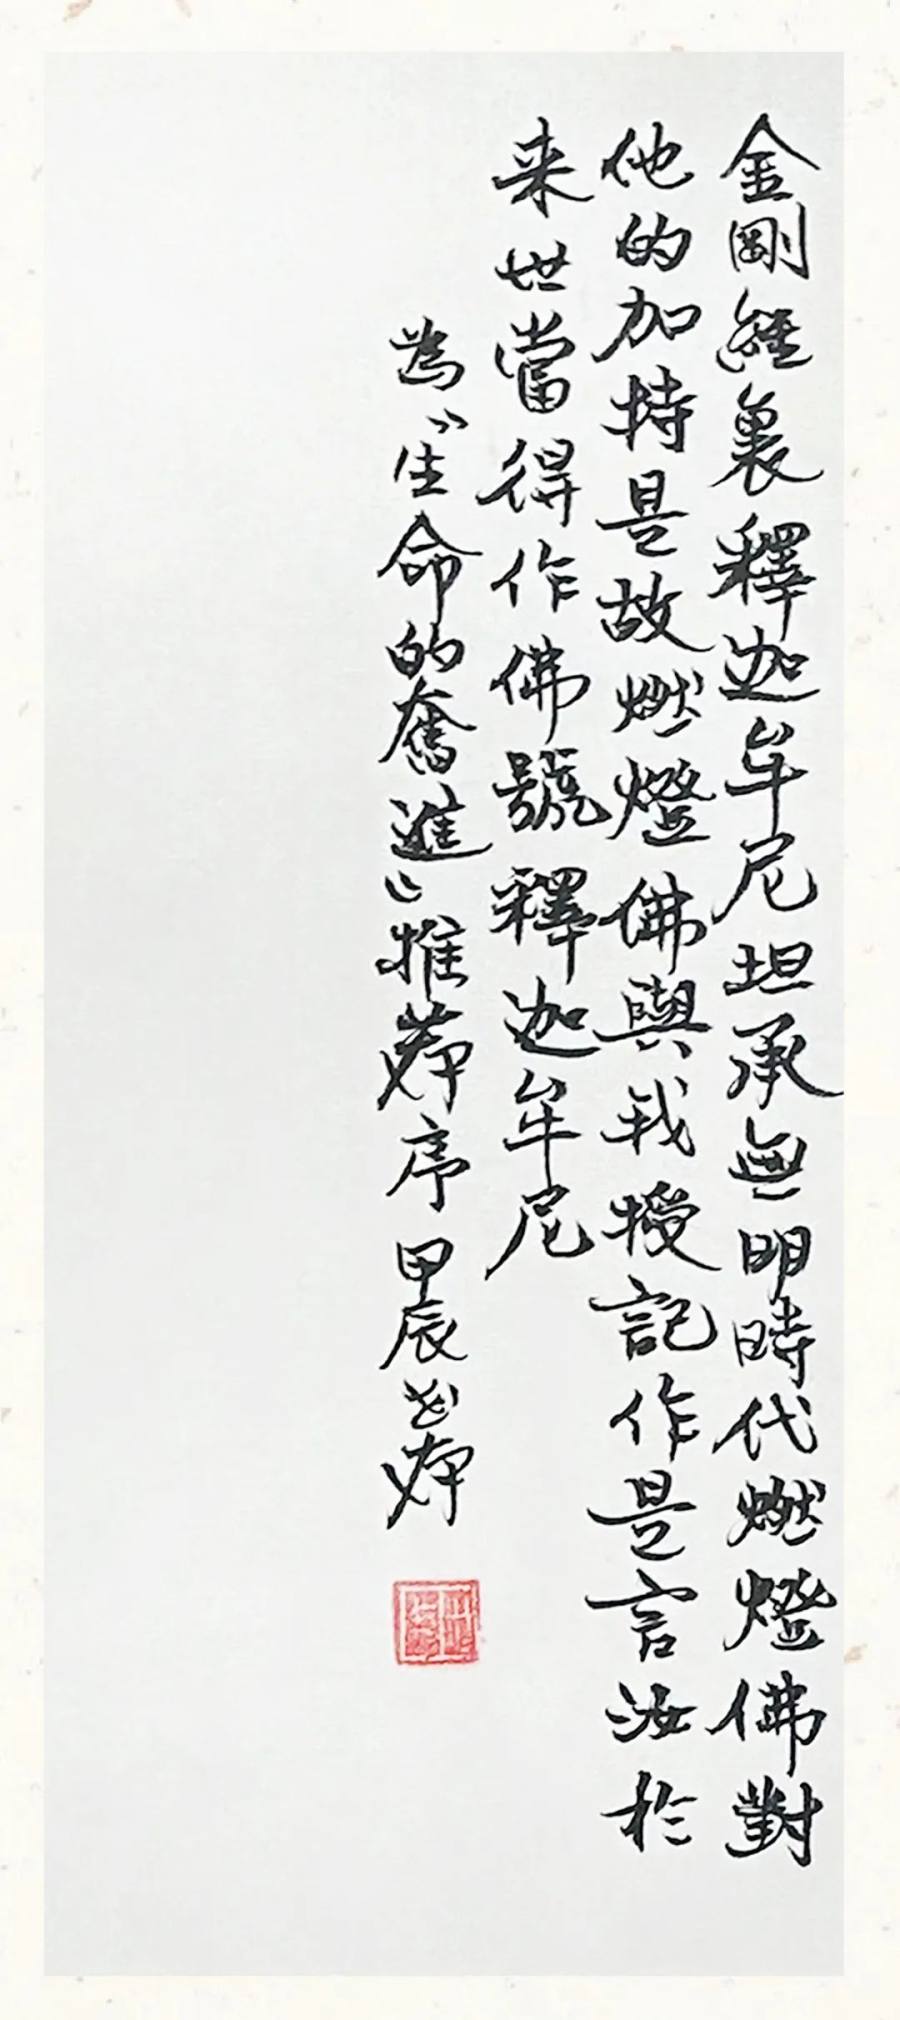 金剛經裏釋迦牟尼坦承無明時代燃燈佛對
他的加持是故燃燈佛與我授記作是言汝於
来世當得作佛號釋迦牟尼
為“生命的奮進”推薦序 甲辰